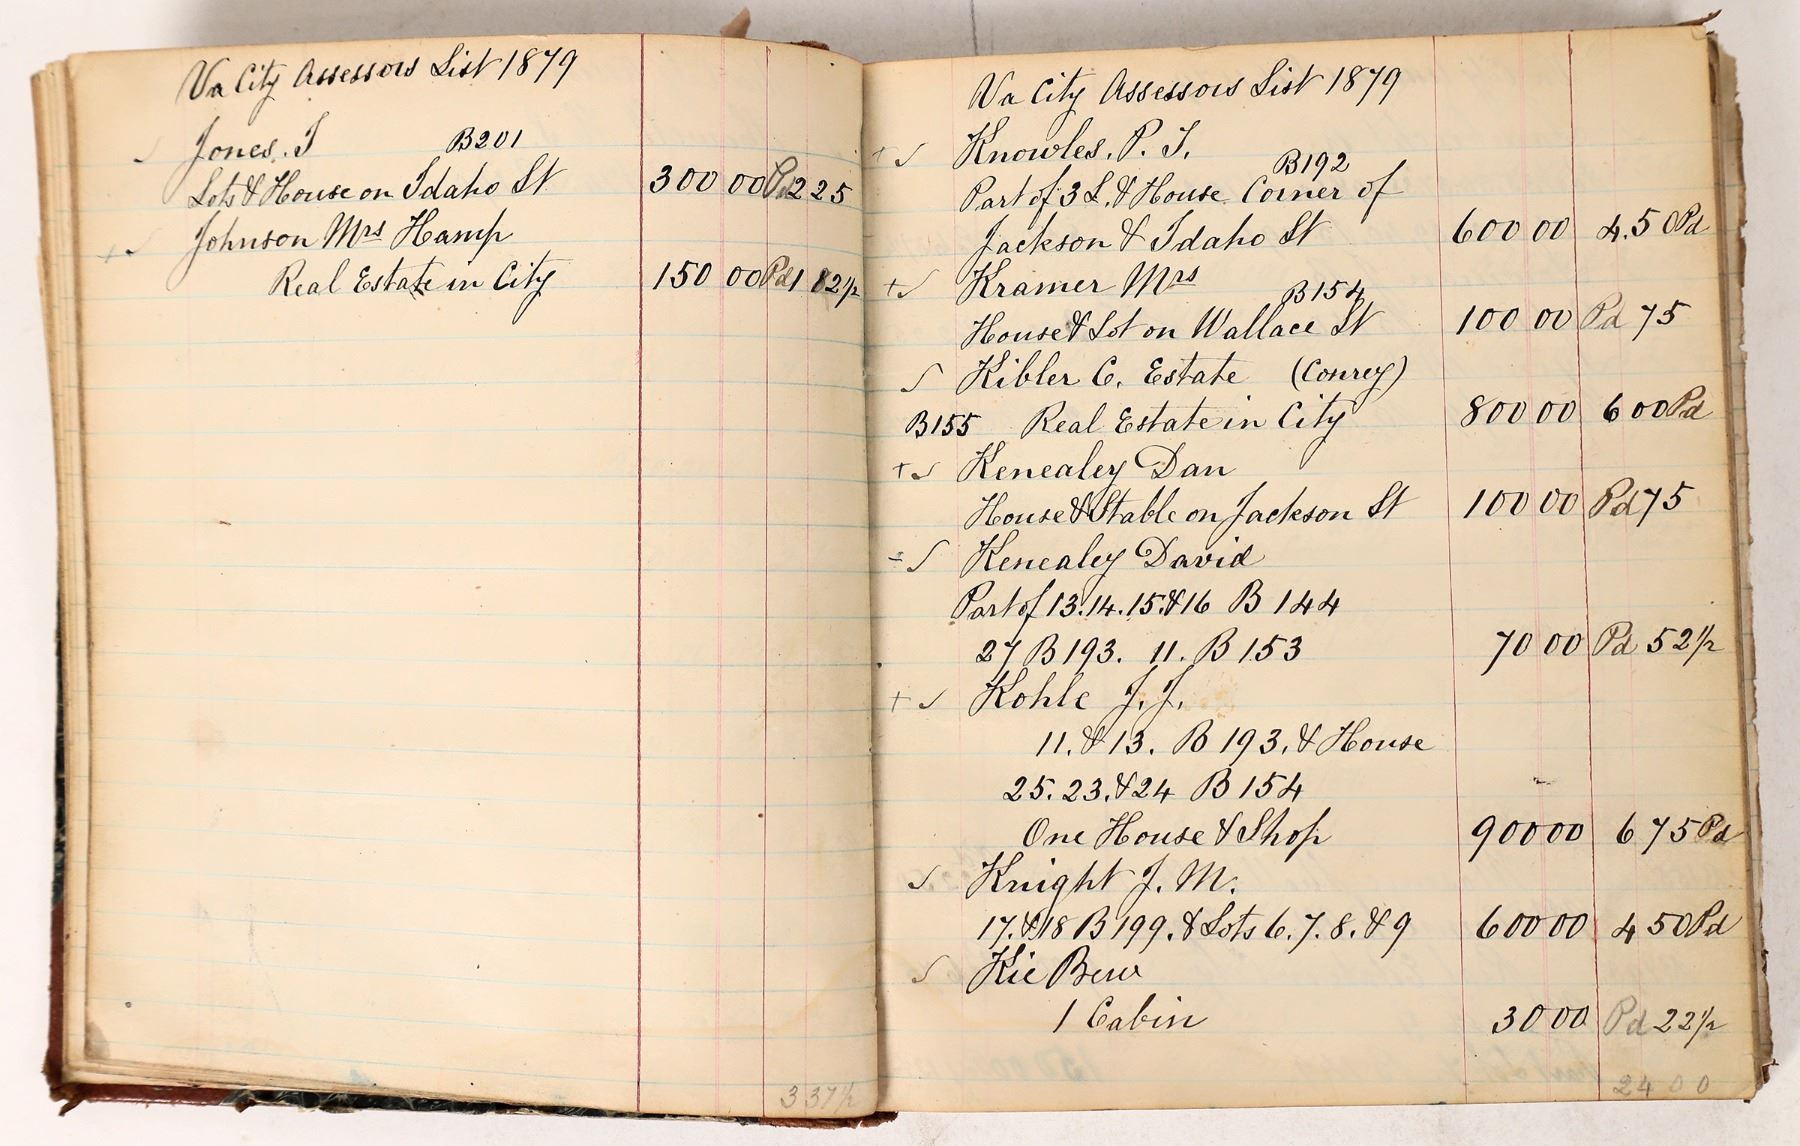 Va City Assessors List 1879
Jones. T B201
Lots & House on Idaho St 300 00 Pd 2 25
Johnson Mrs Hamp
Real Estate in City 150 00 Pd 1 12 1/2
3 37 1/2
Va City Assessors List 1879
Knowles. P. T.
B192
Part of 3 L. & House Corner of
Jackson & Idaho St 600 00 4.50 Pd
Kramer Mrs
B154
House & Lot on Wallace St 100 00 Pd 75
Kibler C. Estate (Conrey)
B155 Real Estate in City 800 00 6 00 Pd
Kenealey Dan
House & Stable on Jackson St 100 00 Pd 75
Kenealey David
Part of 13. 14. 15. & 16 B 144
27 B 193. 11. B 153 70 00 Pd 52 1/2
Kohle J. J.
11. & 13. B 193. & House
25. 23. & 24 B 154
One House & Shop 900 00 6 75 Pd
Knight J. M.
17. & 18 B 199. & Lots 6. 7. 8. & 9 600 00 4 50 Pd
Kie Bew
1 Cabin 30 00 Pd 22 1/2
24 00